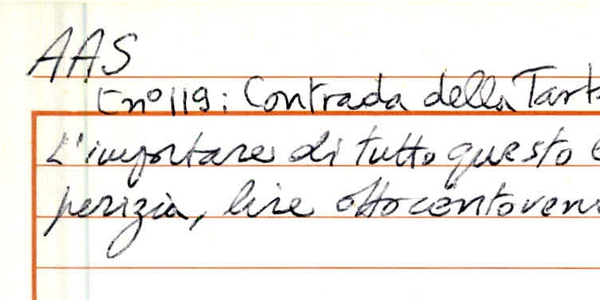 AAS
[nº119: Contrada della Tart
L'importare di tutto questo è
perizia, lire ottocentoven